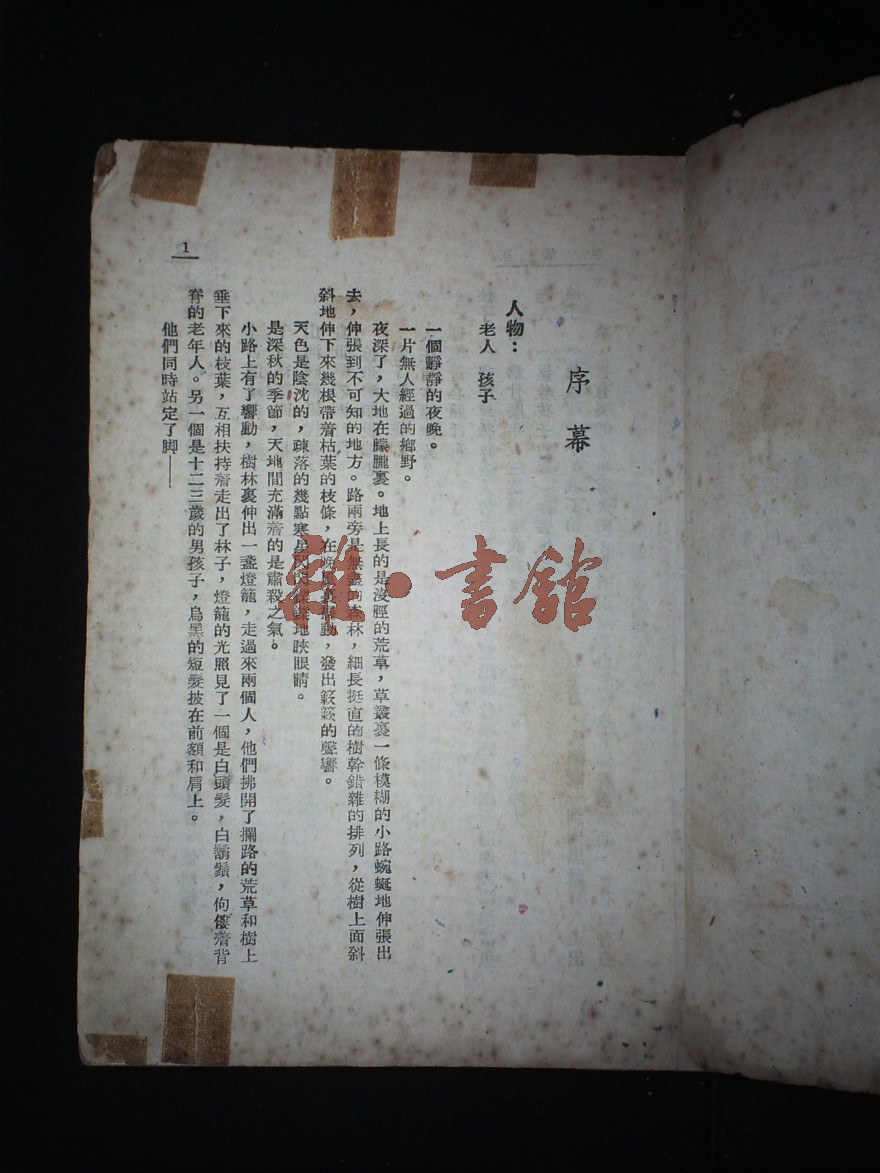 序幕
人物：
老人　孩子
一個靜靜的夜晚。
一片無人經過的鄉野。
夜深了，大地在朦朧裏。地上長的是沒脛的荒草，草叢裏一條模糊的小路蜿蜒地伸張出
去，伸張到不可知的地方。路兩旁是無盡的森林，細長挺直的樹幹錯雜的排列，從樹上面斜
斜地伸下來幾根帶着枯葉的枝條，在晚風裏搖動，發出簌簌的聲響。
天色是陰沈的，疎落的幾點寒星閃閃爍爍地䀹眼睛。
是深秋的季節，天地間充滿着的是肅殺之氣。
小路上有了響動，樹林裏伸出一盞燈籠，走過來兩個人，他們拂開了攔路的荒草和樹上
垂下來的枝葉，互相扶持着走出了林子，燈籠的光照見了一個是白頭髮，白鬍鬚，佝僂着背
脊的老年人。另一個是十二三歲的男孩子，烏黑的短髮披在前額和肩上。
他們同時站定了脚——
1
雜·書館